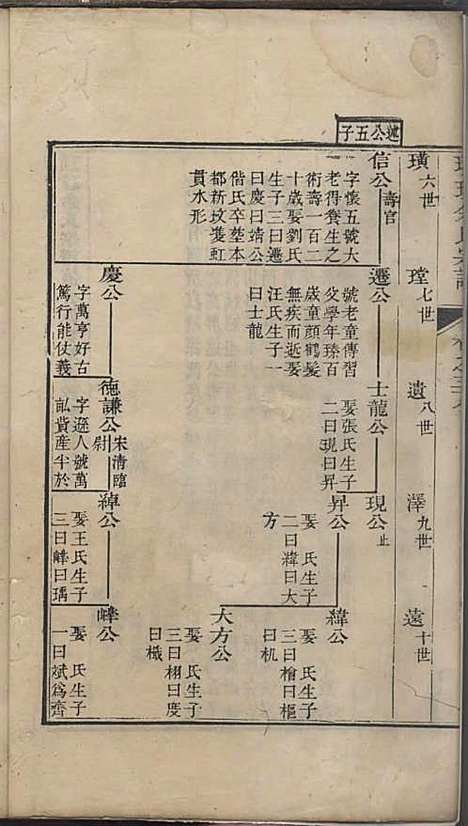 璜六世
瑩七世
遺八世
澤九世
遠十世
述公五子
信公
壽官
字懷五號大
老得養生之
術壽一百二
十歲娶劉氏
生子三曰遷
曰慶曰靖公
偕氏卒塟本
都新坟裏虹
貫水形
遷公
號老童傳習
父學年臻百
歲童顏鶴髮
無疾而逝娶
汪氏生子一
曰士龍
士龍公
娶張氏生子
二曰現曰昇
現公止
昇公
娶 氏生子
二曰緯曰大
方
緯公
娶 氏生子
三曰檜曰樞
曰机
大方公
娶 氏生子
三曰栩曰度
曰檝
慶公
字萬亨好古
篤行能仗義
德謙公
宋清臨
尉
字遜人號萬
畆貲産半於
綽公
娶王氏生子
三曰峰曰瑀
峰公
娶 氏生子
一曰斌爲齊